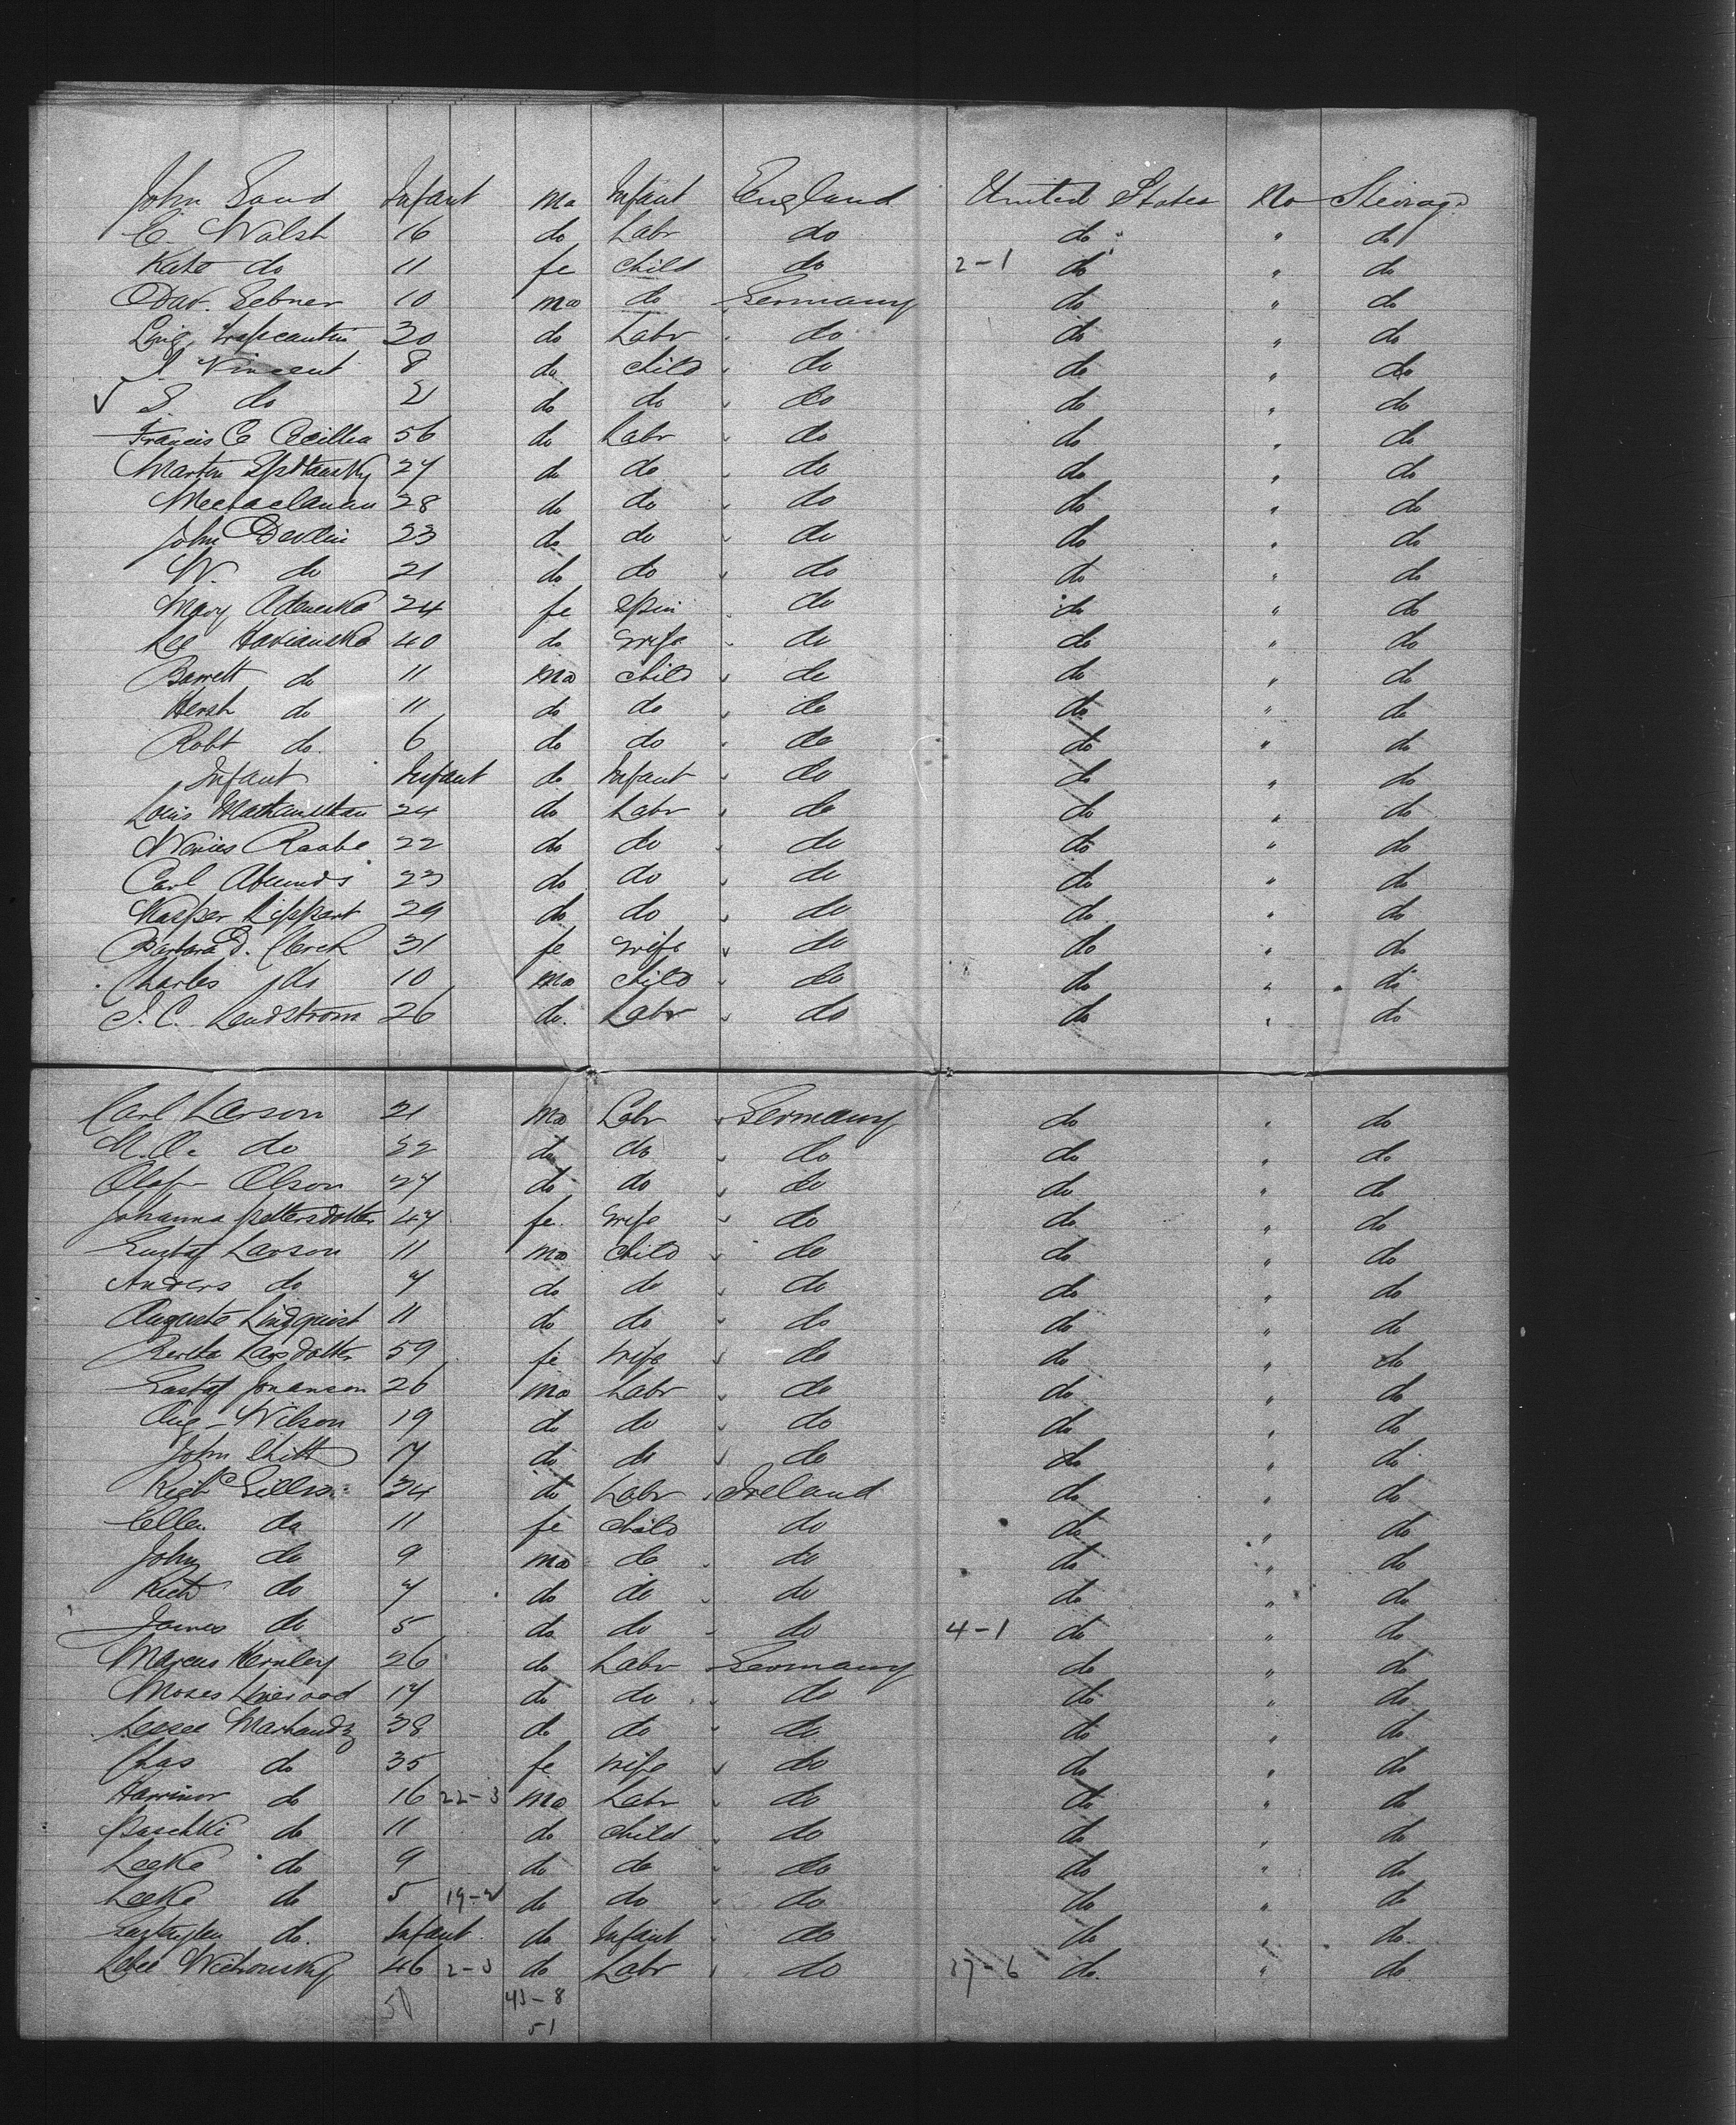 John Sand Infant ma Infant England United States No Steerage
C. Walsh 16 do Labr do do " do
Kate do 11 fe child do 2-1 do " do
Dav. Sebner 10 ma do Germany do " do
30 do Labr do do " do
J Vincent 8 do child do do " do
✓ S do 2 do do do do " do
Francis C 56 do Labr do do " do
Martin 27 do do do do " do
28 do do do do " do
John Devlin 23 do do do do " do
W. do 21 do do do do " do
Mary 24 fe Spin do do " do
Lee 40 do wife do do " do
Barrett do 11 ma child do do " do
Hersh do 11 do do do do " do
Robt do. 6 do do do do " do
Infant Infant do Infant do do " do
Louis 24 do Labr do do " do
Raabe 22 do do do do " do
Carl 23 do do do do " do
Kasper Lippart 29 do do do do " do
Barbara D. Clerch 31 fe wife do do " do
Charles do 10 ma child do do " do
J. C. Lendstrom 26 do. Labr do do " do
Carl Larson 21 ma Labr Germany do " do
M. O. do 22 do do do do " do
Olaf Olson 27 do do do do " do
Johanna Pettersdotter 47 fe. wife do do " do
Gustaf Larson 11 ma child do do " do
Anders do 7 do do do do " do
Auguste Lindquist 11 do do do do " do
Berlta Larsdotter 59 fe wife do do " do
Gustaf Johanson 26 ma Labr do do " do
Aug - Wilson 19 do do do do " do
John 7 do do do do " do
Richd 34 do Labr Ireland do " do
Ellen do 11 fe child do do " do
John do 9 ma do do do " do
Richd do 7 do do do do " do
James do 5 do do do 4-1 do " do
Marcus Henley 26 do Labr Germany do " do
Moses 17 do do do do " do
38 do do do do " do
Chas do 35 fe wife do do " do
do 16 22-3 ma Labr do do " do
Paschki do 11 do child do do " do
Leeke do 9 do do do do " do
Leeke do 5 19-2 do do do do " do
do. Infant do Infant do do " do
46 2-3 do Labr do 37-6 do. " do
51 43-8
51